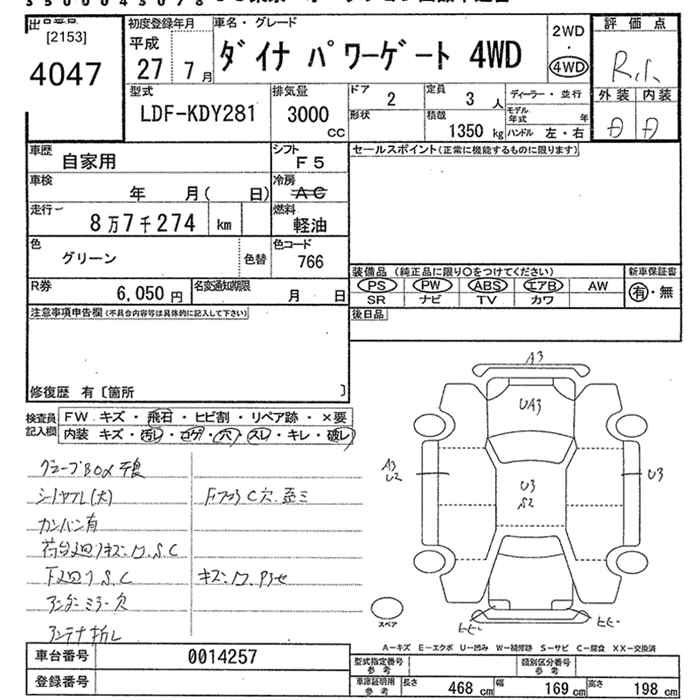 出品番号
[2153]
4047
初度登録年月
平成
27 7月
車名・グレード
ダイナ パワーゲート 4WD
2WD
・
4WD
評価点
R.1.
外装 内装
型式
LDF-KDY281
排気量
3000
CC
ドア
2
定員
3 人
ディーラー・並行
形状
積載
1350 kg
モデル年式 年
ハンドル 左・右
車歴
自家用
シフト
F5
車検
年 月( 日)
冷房
AC
走行
8万7千274 km
燃料
軽油
色
グリーン
色替
色コード
766
R券
6,050 円
名変通知期限
月 日
セールスポイント(正常に機能するものに限ります)
装備品 (純正品に限り○をつけてください)
新車保証書
PS PW ABS エアB AW
有・無
SR ナビ TV カワ
後日品
注意事項申告欄(不具合内容等は具体的に記入して下さい)
修復歴 有〔箇所 〕
検査員記入欄
FW キズ・飛石・ヒビ割・リペア跡・×要
内装 キズ・汚レ・コゲ・穴・スレ・キレ・破レ
グローブBOX不良
シートヤブレ(大)
カンバン有
荷台廻りキズ・ワ.S.C
下廻りS.C
アンダーミラー欠
アンテナ折レ
A3
UA3
A3
U2
U3
S2
U3
スペア
A−キズ E−エクボ U−凹み W−補修跡 S−サビ C−腐食 XX−交換済
車台番号
0014257
登録番号
型式指定番号
参考
類別区分番号
参考
車庫証明用
参考
長さ 468 cm 幅 169 cm 高さ 198 cm